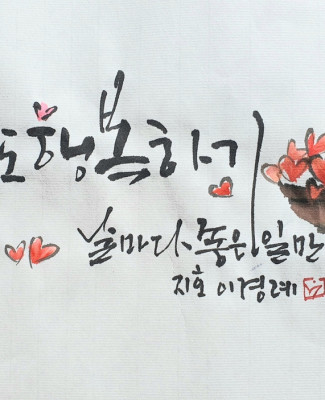 도행복하기
날마다 좋은 일만
지호 이경례